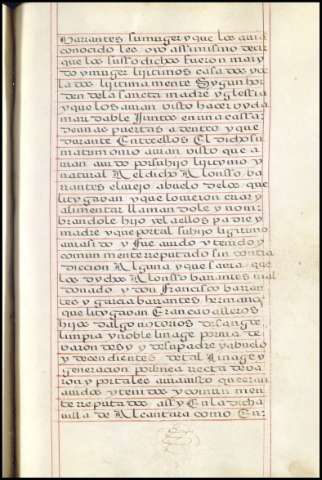 Barrantes su muger y que los avia
conocido los oyo assimismo decir
que los susso dichos fueron mary
do y muger ligitimos casados y ve
lados ligitimamente Segun hor
den de la sancta madre yglessia
y que los avian visto hacer vyda
maridable Juntos en una cassa
de unas puertas adentro y que
durante Entre ellos El dicho su
matrimonio avian visto que a
vian avido por su hijo ligitimo y
natural Al dicho Alonsso ba
rrantes el viejo abuelo de los que
lityvavan y que lo vieron criar y
alimentar llamandole y nom
brandole hijo y el a ellos padre y
madre y que por tal su hijo ligitimo
avia sido y fue avido y tenido y
comunmente reputado sin contra
diccion Alguna y que savia que
los dichos Alonsso barrantes mal
donado y don francisco barran
tes y garcia barrantes hermanos
que lityvavan Eran cavalleros
hijos dalgo notorios de sangre
limpia y noble linage por via de
varon de su y de su padre y abuelo
y decendientes de tal Linage y
generacion por linea recta de va
ron y por tales avian sido y eran
avidos y tenidos y comunmen
te reputados assy En la dicha
villa de Alcantara como En